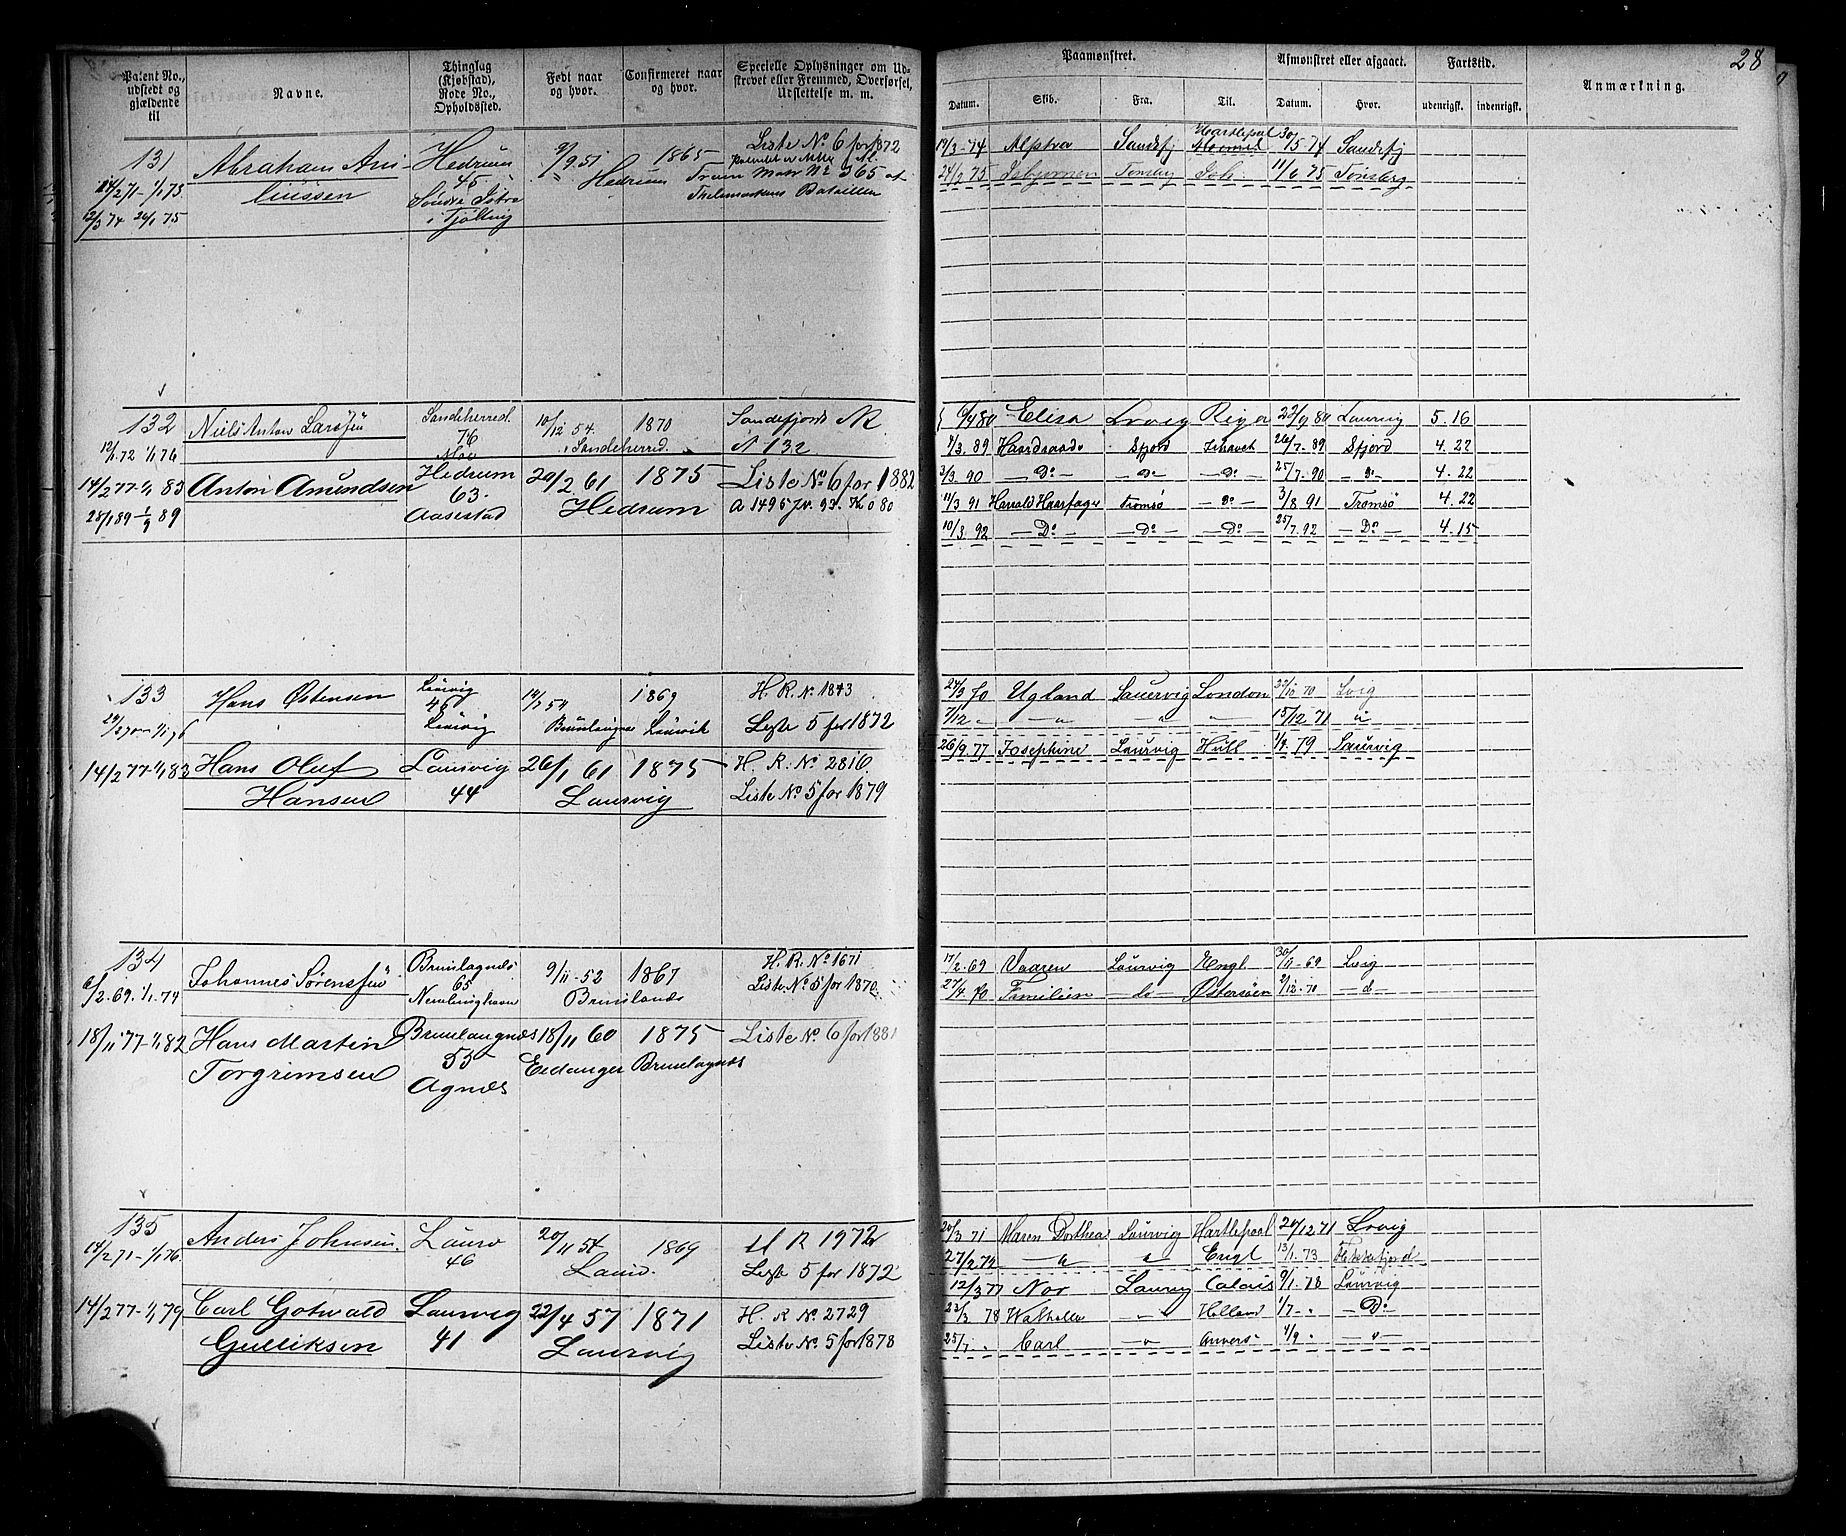 28
Patent No., udstedt og gjældende til
Navne.
Thinglag (Kjøbstad), Rode No., Opholdssted.
Født naar og hvor.
Confirmeret naar og hvor.
Specielle Oplysninger om Udstrevet eller Fremmed, Overførsel, Urslettelse m. m.
Paamønstret.
Afmønstret eller afgaaet.
Fartstid.
Anmærkning.
Datum.
Skib.
Fra.
Til.
Datum.
Hvor.
udenrigsk.
indenrigsk.
131
14/2 71 - 1/1 75
12/3 74 26/1 75
Abraham
Hedrum
45
Søndre
i Tjølling
9/9. 51
Hedrum
1865
Liste No 6 for 1872
No 365 af
Thelemarkens Bataillon
17/3 - 74 Sandefj Hartlepool 30/5 74 Sandefj
24/2 75 Isbjørnen Tønsberg 11/6 75 Tønsberg
132
12/1. 72 1/1 76
Niels Anton Larssen
Sandeherred
76
Moe
10/12 54
Sandeherred
1870
Sandefjords
N 132
14/2 77 - 1/1 83
28/1 89 - 1/9 89
Anton Amundsen
Hedrum
63.
Aasestad
20/2 61
Hedrum
1875
Liste No 6 for 1882
6/4 80 Elisa Lrvig Riga 22/9 80 Laurvig 5. 16
7/3. 89 Haardraade Sfjord Ishavet 26/7. 89 Sfjord 4. 22
3/3. 90 — Do — — Do — — Do — 25/7. 90 Do 4. 22
11/3 91 Harald Haarfager Tromsø — Do — 3/8 91 Tromsø 4. 22
10/3. 92 — Do — — Do — — Do — 25/7. 92 — Do — 4. 15
133
Hans Østensen
Laurvig
46
Laurvig
14/7 54
1869
Laurvik
H. R. No 1843
Liste 5 for 1872
24/3 70 Ugland Laurvig London 70 Lvig
7/12 15/12 71
14/2 77 - 1/1 83
Hans Oluf
Hansen
Laurvig
44
26/1 61
Laurvig
1875
H. R. No 2816
Liste No 5 for 1879
26/9. 77 Josephine Laurvig Hull 1/9. 79 Laurvig
134
6/2. 69. 1/1. 74
Johannes Sørenssen
Brunlagnæs
65
9/11 - 52
1867
H. R. No 1671
Liste No 5 for 1870
17/2. 69 Laurvig Engl 30/11 - 69 Lvig
27/4 70 Familien — do Østersøen 2/12. 70 — d —
18/11 77 - 1/1 82
Hans Martin
Torgrimsen
Brunlangnæs
55
Agnæs
18/11 60
Eidanger
1875
Brunlagnæs
Liste No 6 for 1881
135
14/2 71 - 1/1 76
Anders Johnsen
Laurv
46
20/11 54
Laurv.
1869
H R 1972
Liste 5 for 1872
20/3 71 Maren Dorthea Laurvig Hartlepool 20/12 71 Lrvig
27/2 72 Engl 13/1. 73
14/2 77 - 1/1 79
Carl Gotwald
Gulliksen
Laurvig
41
22/4 57
Laurvig
1871
H. R No 2729
Liste No 5 for 1878
12/3 77 Nor Laurvig Calais 9/1. 78 Laurvig
23/3 78 Walhalla Holland 1/7 — Do
25/7. Carl Anvers 4/9